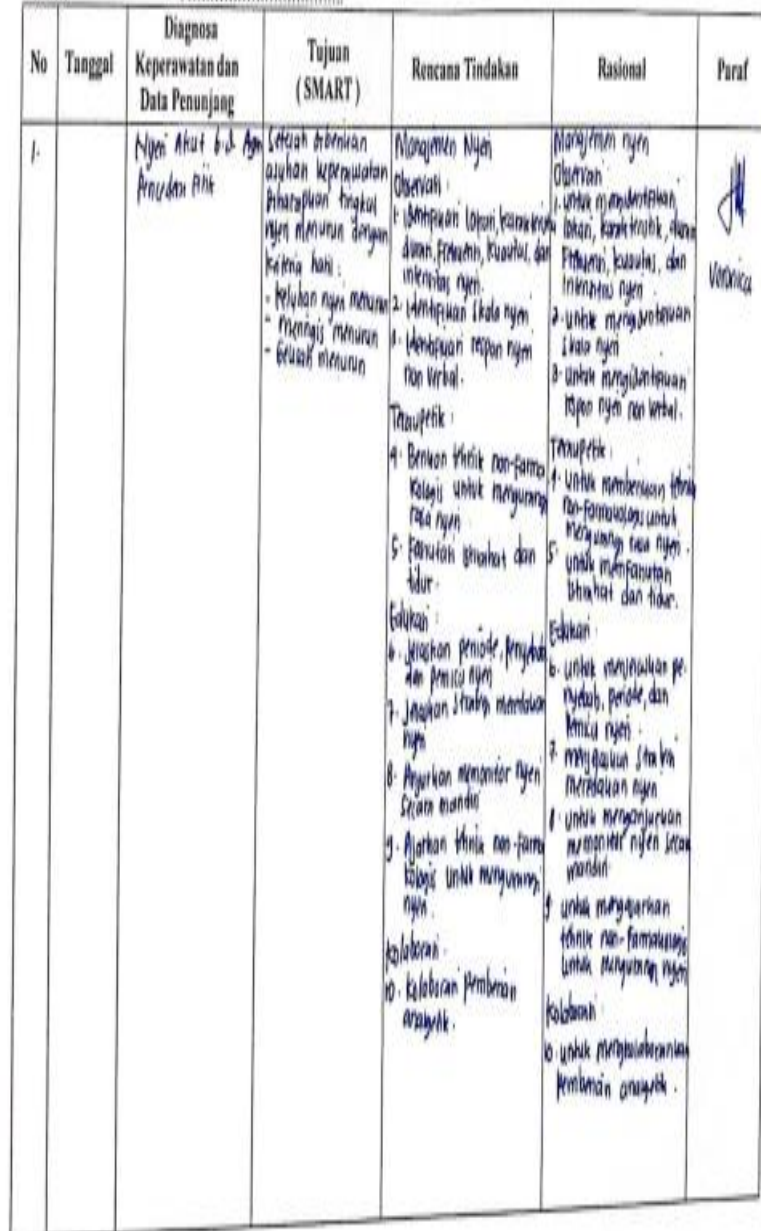 No
Tanggal
Diagnosa
Keperawatan dan
Data Penunjang
Tujuan
( SMART )
Rencana Tindakan
Rasional
Paraf
1.
Nyeri Akut b.d Agen
Pencedera Fisik
Setelah diberikan
asuhan keperawatan
diharapkan tingkat
nyeri menurun dengan
kriteria hasil :
- keluhan nyeri menurun
- meringis menurun
- Gelisah menurun
Manajemen Nyeri
Observasi :
1. Identifikasi lokasi, karakteristik
durasi, frekuensi, kualitas, dan
intensitas nyeri.
2. Identifikasi skala nyeri
3. Identifikasi respon nyeri
non verbal.
Terapeutik :
4. Berikan tehnik non-farma
kologis untuk mengurangi
rasa nyeri
5. Fasilitasi istirahat dan
tidur.
Edukasi :
6. Jelaskan periode, penyebab
dan pemicu nyeri
7. Jelaskan strategi meredakan
nyeri
8. Anjurkan memonitor nyeri
secara mandiri
9. Ajarkan tehnik non-farma
kologis untuk mengurangi
nyeri.
Kolaborasi :
10. Kolaborasi pemberian
analgetik.
Manajemen nyeri
Observasi
1. untuk mengidentifikasi
lokasi, karakteristik, durasi
frekuensi, kualitas, dan
intensitas nyeri
2. untuk mengidentifikasi
skala nyeri
3. untuk mengidentifikasi
respon nyeri non verbal.
Terapeutik :
4. untuk memberikan tehnik
non-farmakologis untuk
mengurangi rasa nyeri.
5. untuk memfasilitasi
istirahat dan tidur.
Edukasi :
6. untuk menjelaskan pe-
nyebab, periode, dan
pemicu nyeri.
7. menjelaskan strategi
meredakan nyeri
8. untuk menganjurkan
memonitor nyeri secara
mandiri.
9. untuk mengajarkan
tehnik non-farmakologis
untuk mengurangi nyeri
Kolaborasi :
10. untuk mengkolaborasikan
pemberian analgetik.
Veronica